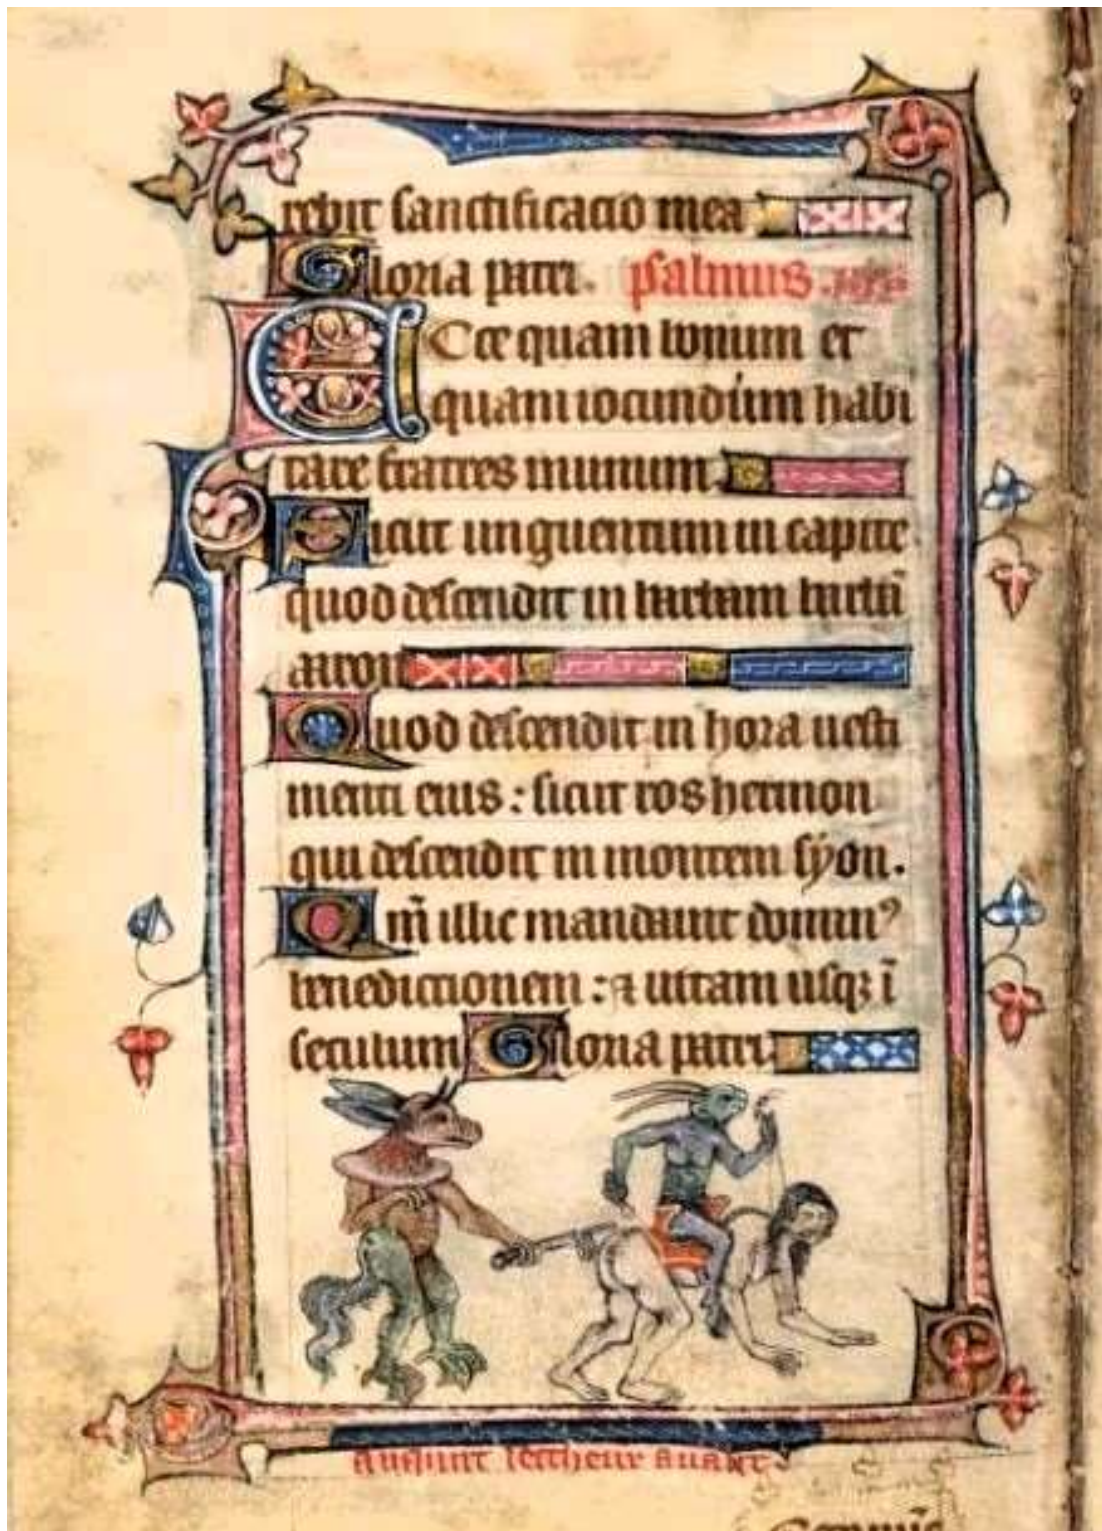 rebit sanctificacio mea
Gloria patri. psalmus.
Ecce quam bonum et
quam iocundum habi
tare fratres inunum
Sicut unguentum in capite
quod descendit in barbam barbã
aaron
Quod descendit in hora uesti
menti eius : sicut ros hermon
qui descendit in montem syon.
Qm̃ illic mandauit domin⁹
benedictionem : & uitam usqꝫ ĩ
seculum Gloria patri.
lettheur auant